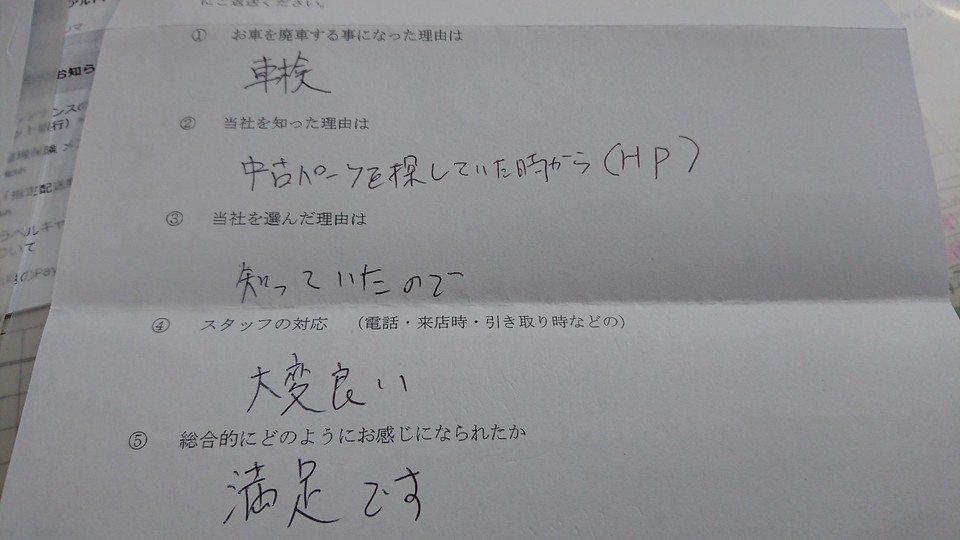 にご返送ください。
① お車を廃車する事になった理由は
車検
② 当社を知った理由は
中古パーツを探していた時から(HP)
③ 当社を選んだ理由は
知っていたので
④ スタッフの対応 (電話・来店時・引き取り時などの)
大変良い
⑤ 総合的にどのようにお感じになられたか
満足です
お知ら